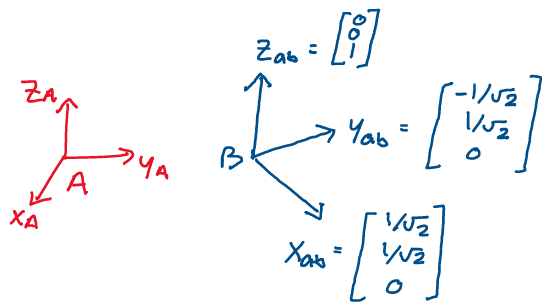 Z_A
y_A
A
x_A
Z_ab = [0 0 1]
B
y_ab = [-1/√2 1/√2 0]
x_ab = [1/√2 1/√2 0]